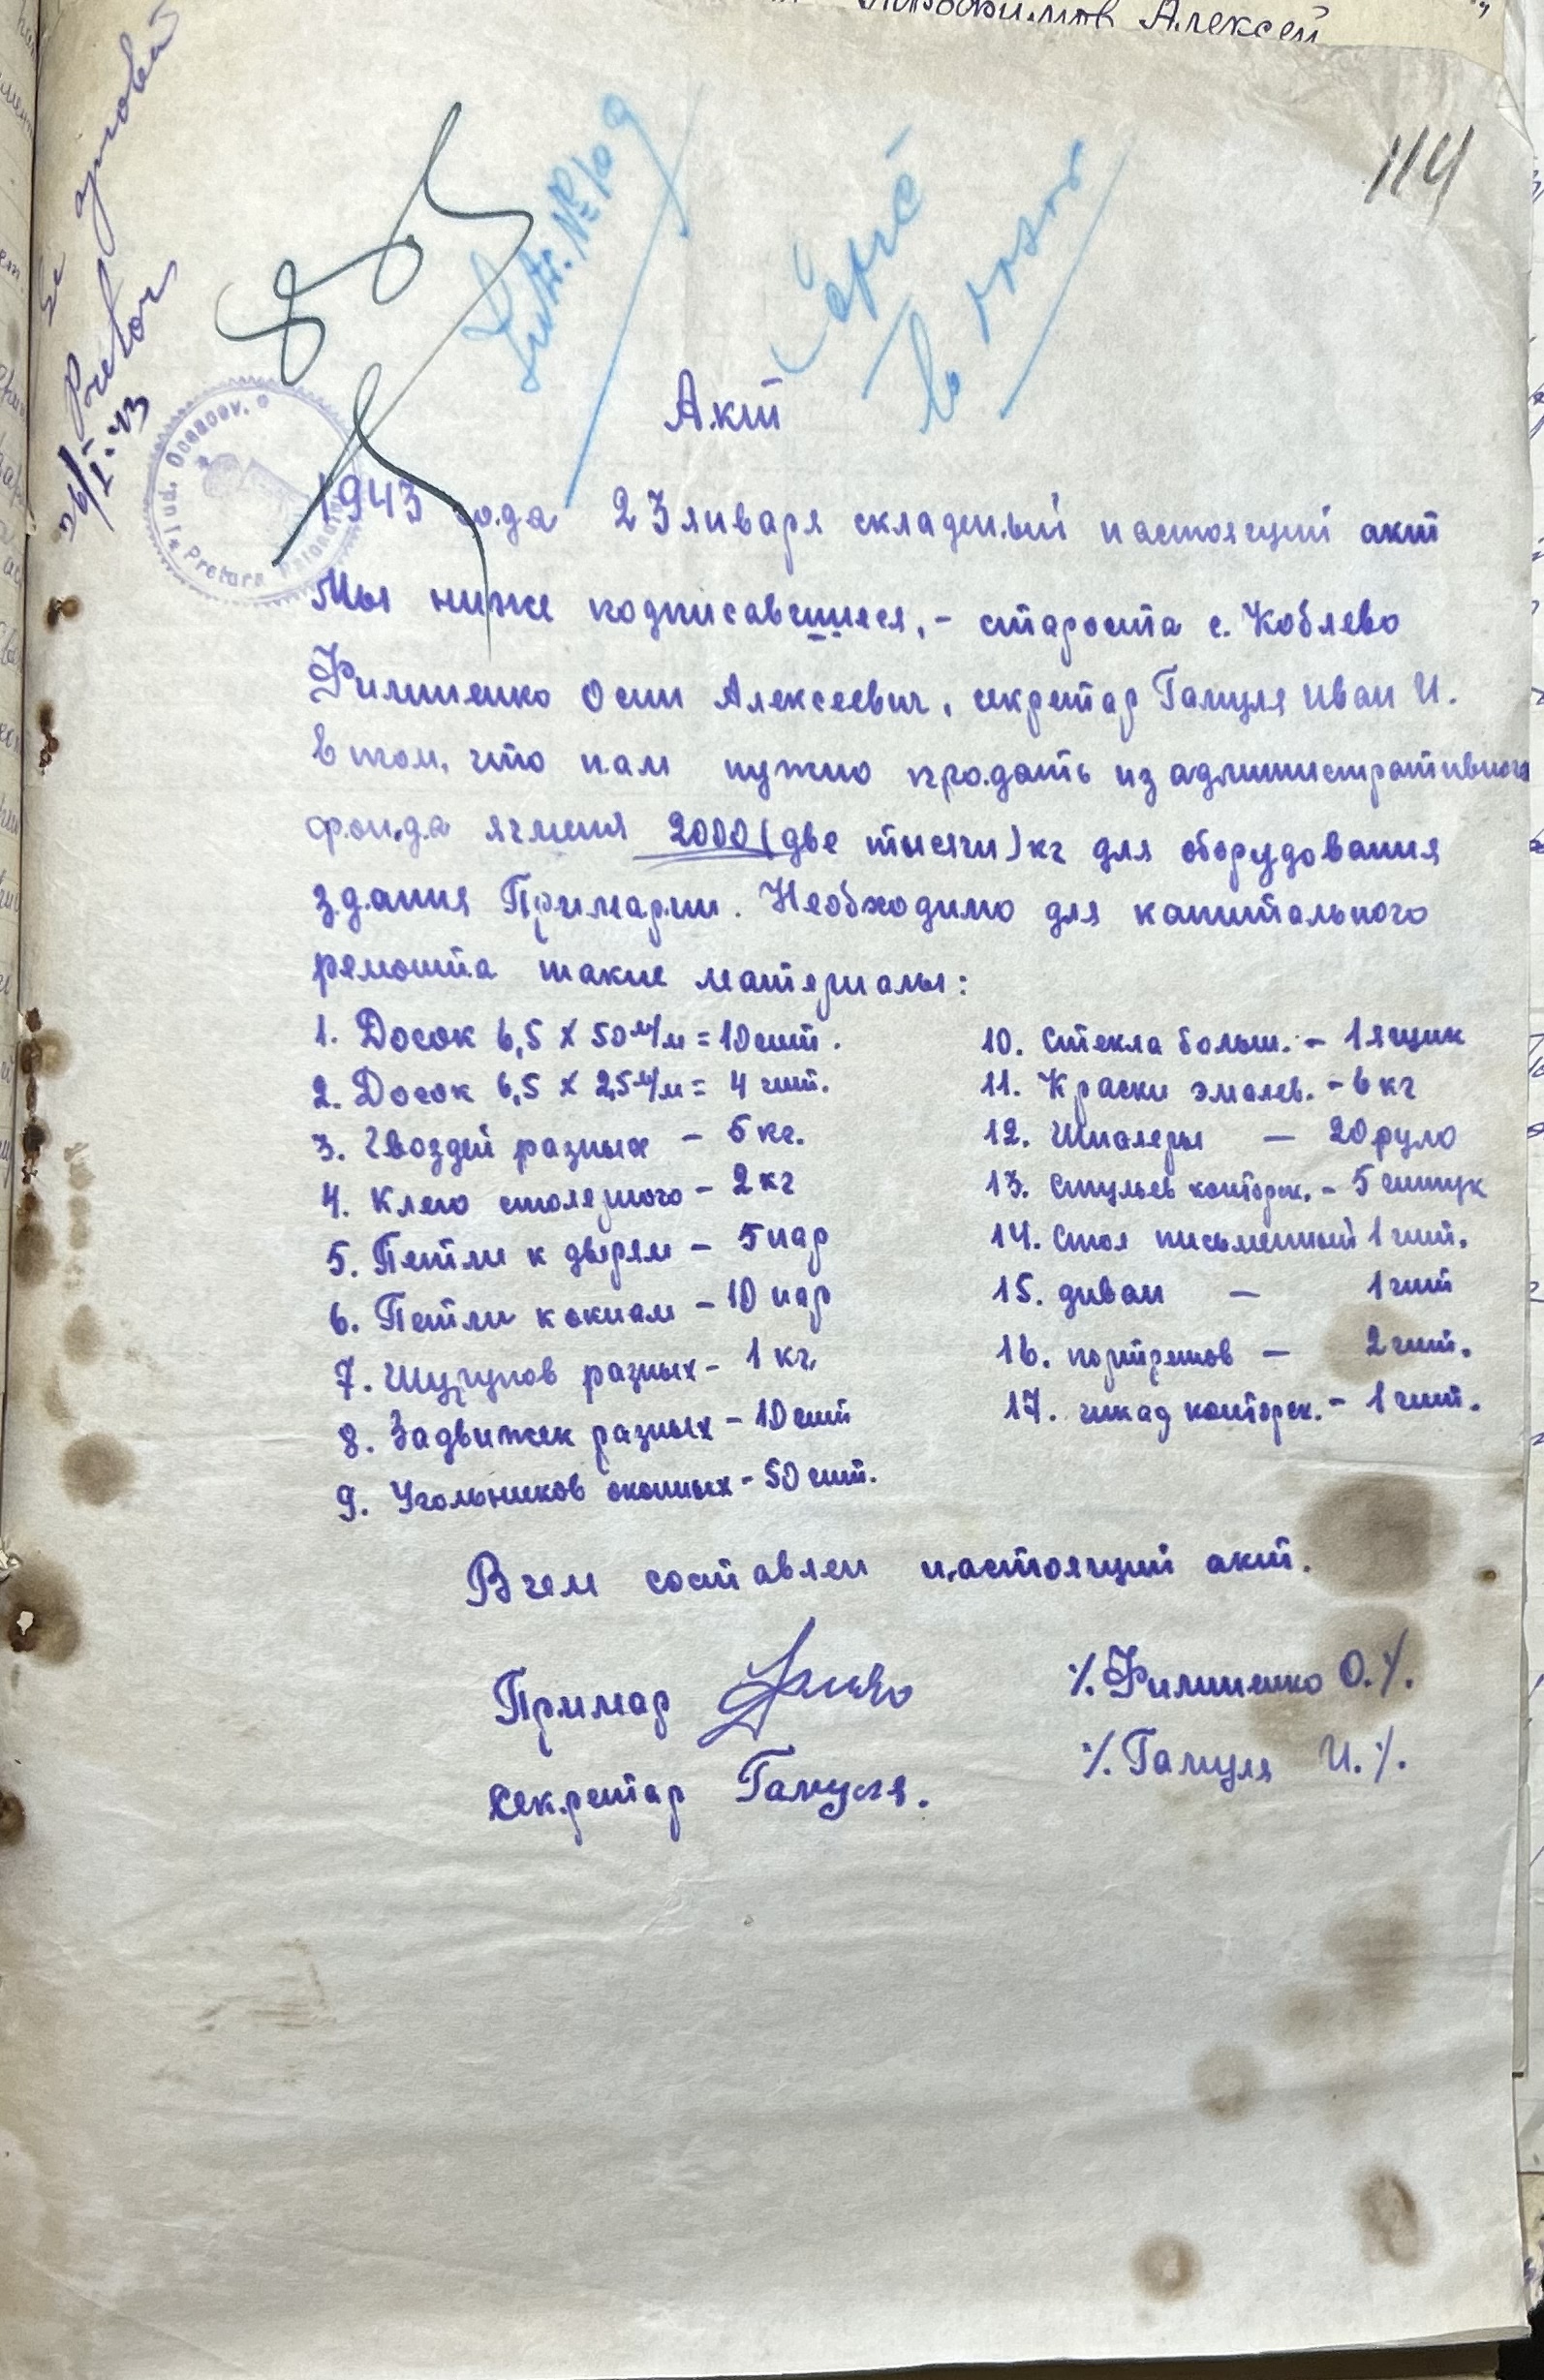 Алексей
114
Se aprobă
Pretor
26/I.43
Акт
1943 года 23 января складеный настоящий акт
Мы ниже подписавшиеся, - староста с. Коблево
Филипенко Осип Алексеевич, секретар Гамуля Иван И.
в том, что нам нужно продать из административного
фонда ячменя 2000 (две тысячи) кг для оборудования
здания Примарии. Необходимо для капитального
ремонта такие материалы:
1. Досок 6,5 х 50 м/м = 10 шт.
2. Досок 6,5 х 25 м/м = 4 шт.
3. Гвоздей разных - 5 кг.
4. Клею столярного - 2 кг
5. Петли к дверям - 5 пар
6. Петли к окнам - 10 пар
7. Шурупов разных - 1 кг.
8. Задвижек разных - 10 шт
9. Угольников оконных - 50 шт.
10. Стекла больш. - 1 ящик
11. Краски эмалев. - 6 кг
12. Шпалеры - 20 руло
13. Стульев конторск. - 5 штук
14. Стол письменный 1 шт.
15. диван - 1 шт
16. портретов - 2 шт.
17. шкаф конторск. - 1 шт.
В чем составлен настоящий акт.
Примар ./. Филипенко О. ./.
Секретар Гамуля. ./. Гамуля И. ./.